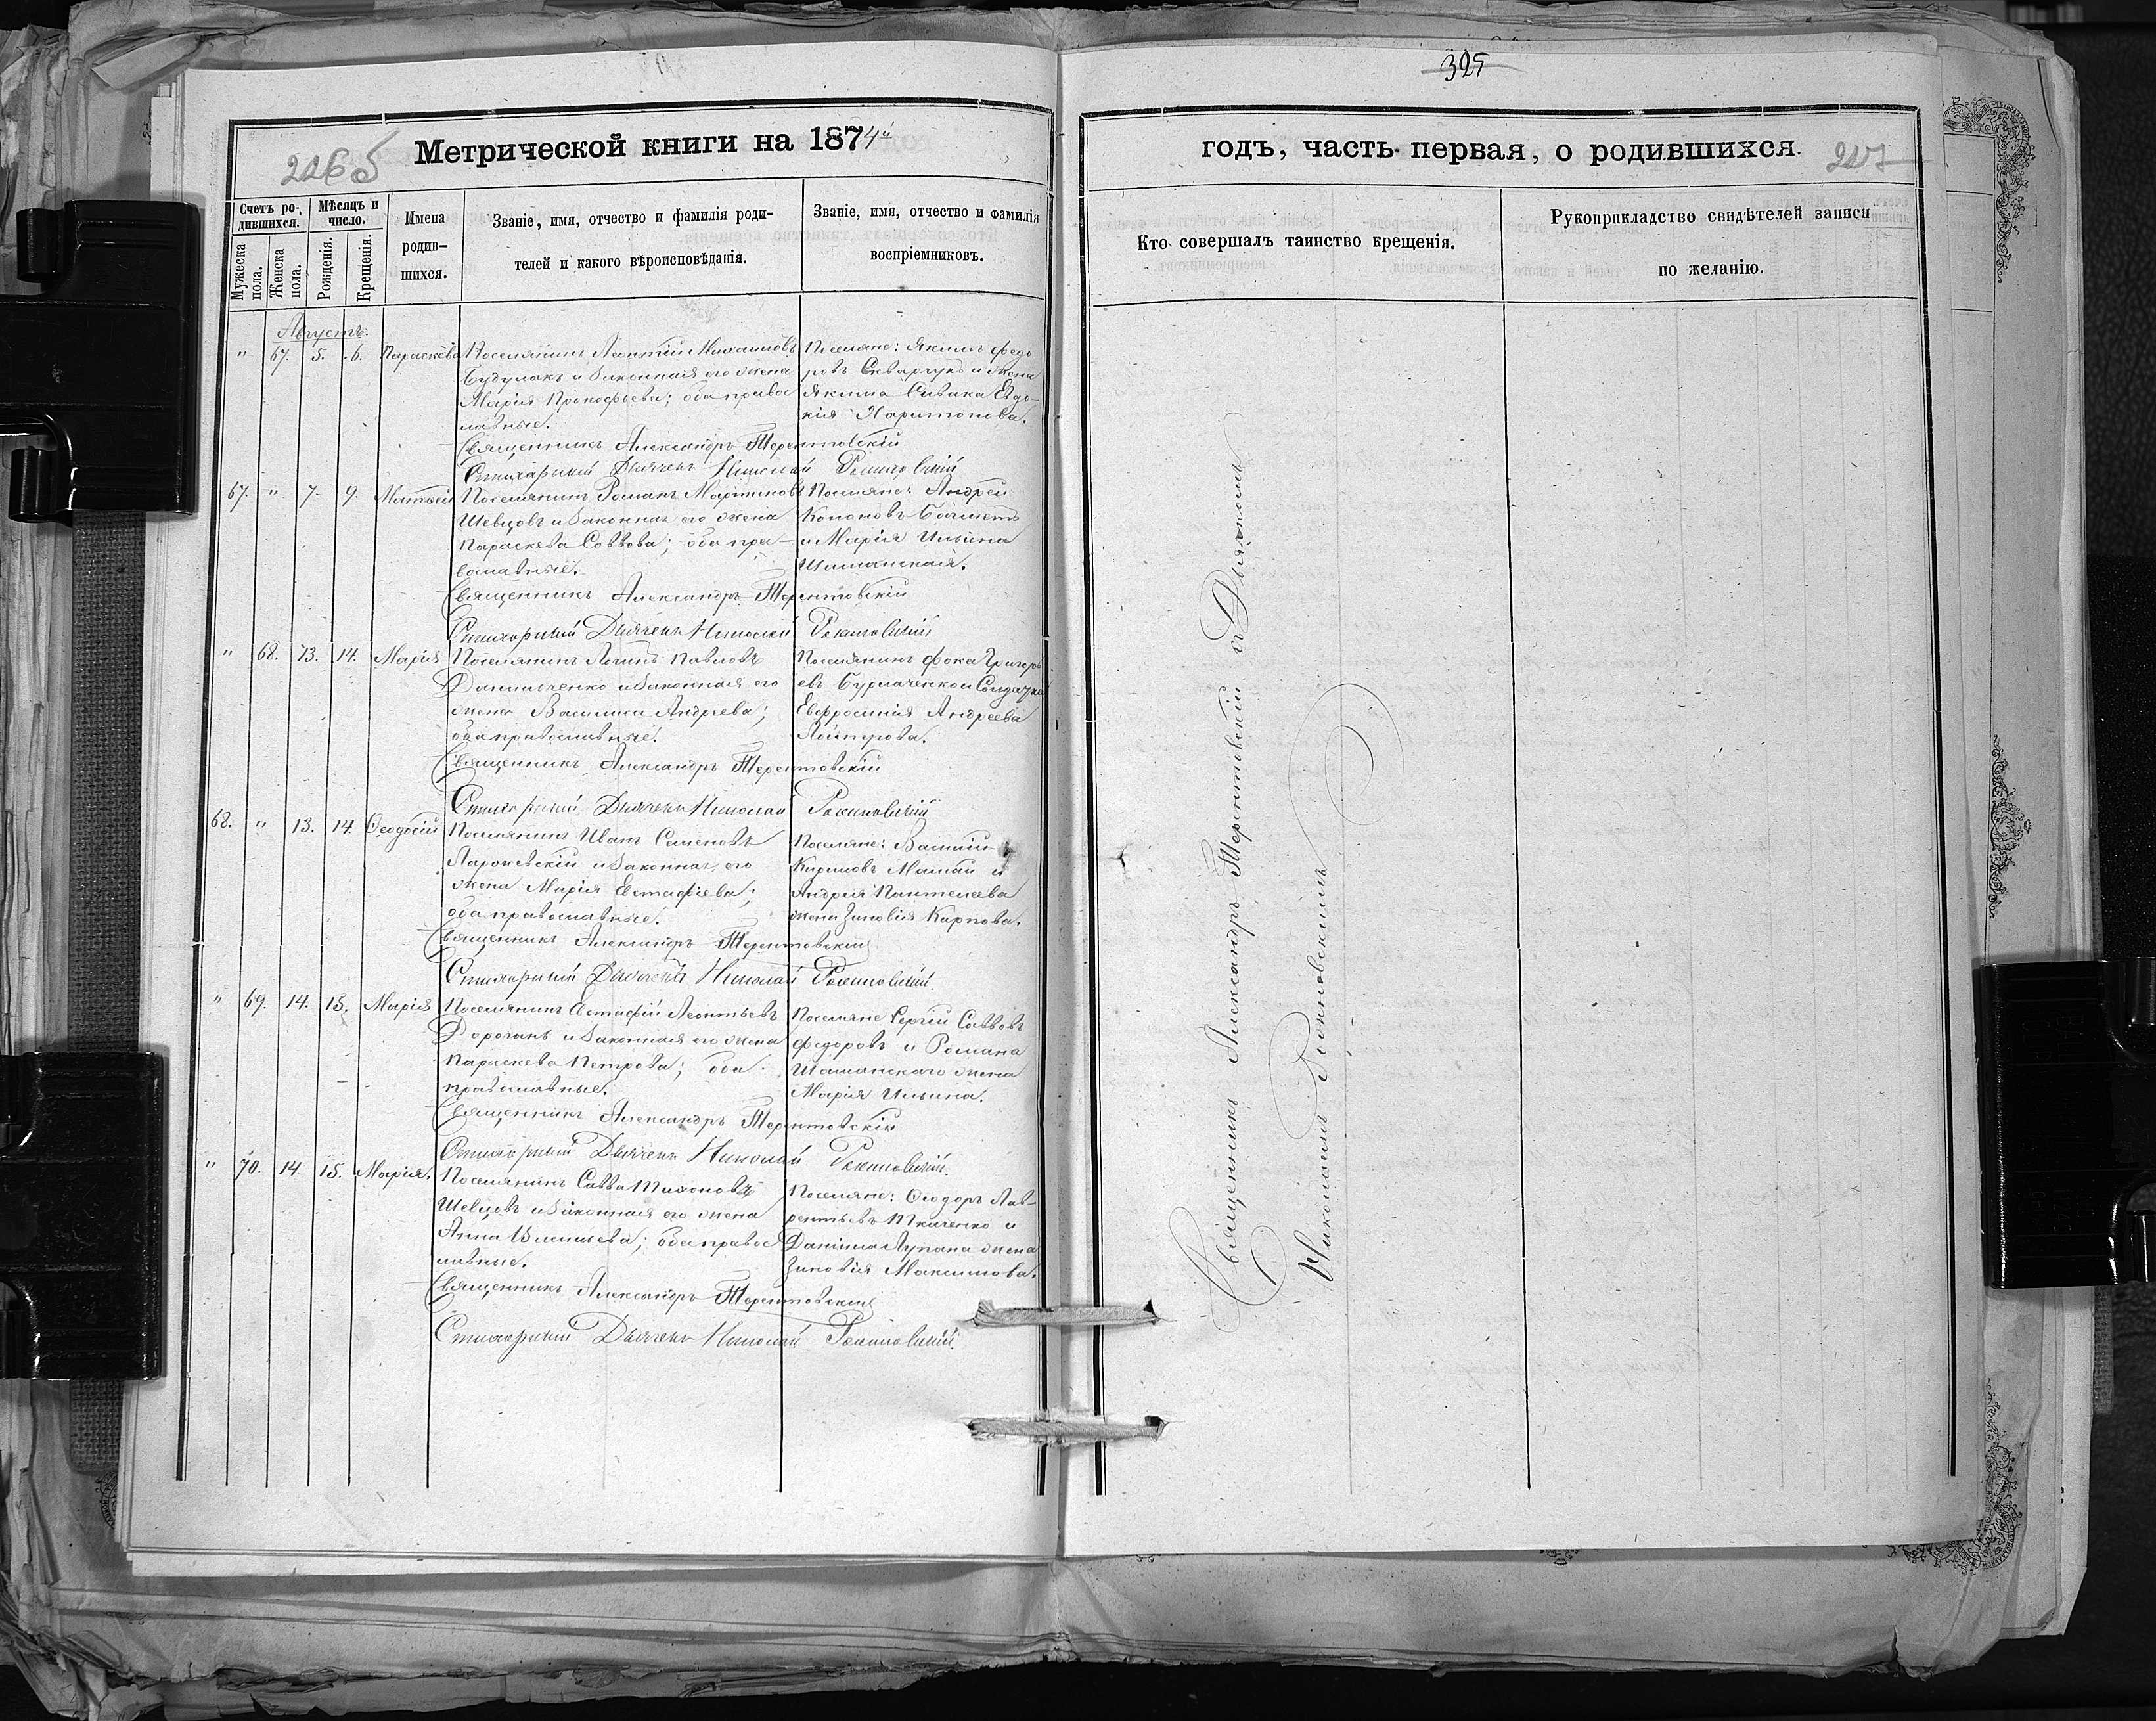 325
Метрической книги на 1874й
226б
годъ, часть первая, о родившихся.
227
Счетъ родившихся.
Мужеска пола.
Женска пола.
Мѣсяцъ и число.
Рожденія.
Крещенія.
Имена родившихся.
Званіе, имя, отчество и фамилія родителей и какого вѣроисповѣданія.
Званіе, имя, отчество и фамилія воспріемниковъ.
Кто совершалъ таинство крещенія.
Рукоприкладство свидѣтелей записи по желанію.
Августъ.
" 67. 5. 6. Параскева
Поселянинъ Леонтій Михаиловъ
и законная его жена
Марія Прокофьева; оба правос
лавные.
Поселяне: Якимъ Федо
ровъ Скварчукъ и жена
Якима Сивака Евдо-
кія Харитонова.
Священникъ Александръ Терентовскій
Стихарный Дьячекъ Николай
67. " 7. 9. Матѳей
Поселянинъ Романъ Мартиновъ
Шевцовъ и законная его жена
Параскева Саввова; оба пра-
вославные.
Поселяне: Андрей
Кононовъ
и Марія Ильина
Шиманская.
Священникъ Александръ Терентовскій
Стихарный Дьячекъ Николай
" 68. 13. 14. Марія
Поселянинъ Логинъ Павловъ
Данильченко и законная его
жена Василиса Андреева;
оба православные.
Поселянинъ Фока Григорь
евъ Бурлаченко и Солдатка
Евфросинія Андреева
Священникъ Александръ Терентовскій
Стихарный Дьячекъ Николай
68. " 13. 14. Ѳеодосій
Поселянинъ Иванъ Семеновъ
и законная его
жена Марія Евстафіева;
оба православные.
Поселяне: Василій
Кириловъ Мамай и
Андрея Пантелеева
жена Зиновія Карпова.
Священникъ Александръ Терентовскій
Стихарный Дьячекъ Николай
" 69. 14. 15. Марія
Поселянинъ Евстафій Леонтьевъ
Дороганъ и законная его жена
Параскева Петрова; оба
православные.
Поселяне Сергій Саввовъ
Федоровъ и Романа
Шиманскаго жена
Марія Ильина.
Священникъ Александръ Терентовскій
Стихарный Дьячекъ Николай
" 70. 14. 15. Марія.
Поселянинъ Савва Тихоновъ
Шевцовъ и законная его жена
Анна Васильева; оба правос
лавные.
Поселяне: Ѳеодоръ Лав-
рентьевъ Ткаченко и
Даніила Лупана жена
Зиновія Максимова.
Священникъ Александръ Терентовскій
Стихарный Дьячекъ Николай
Священникъ Александръ Терентовскій съ Дьячкомъ
Николаемъ